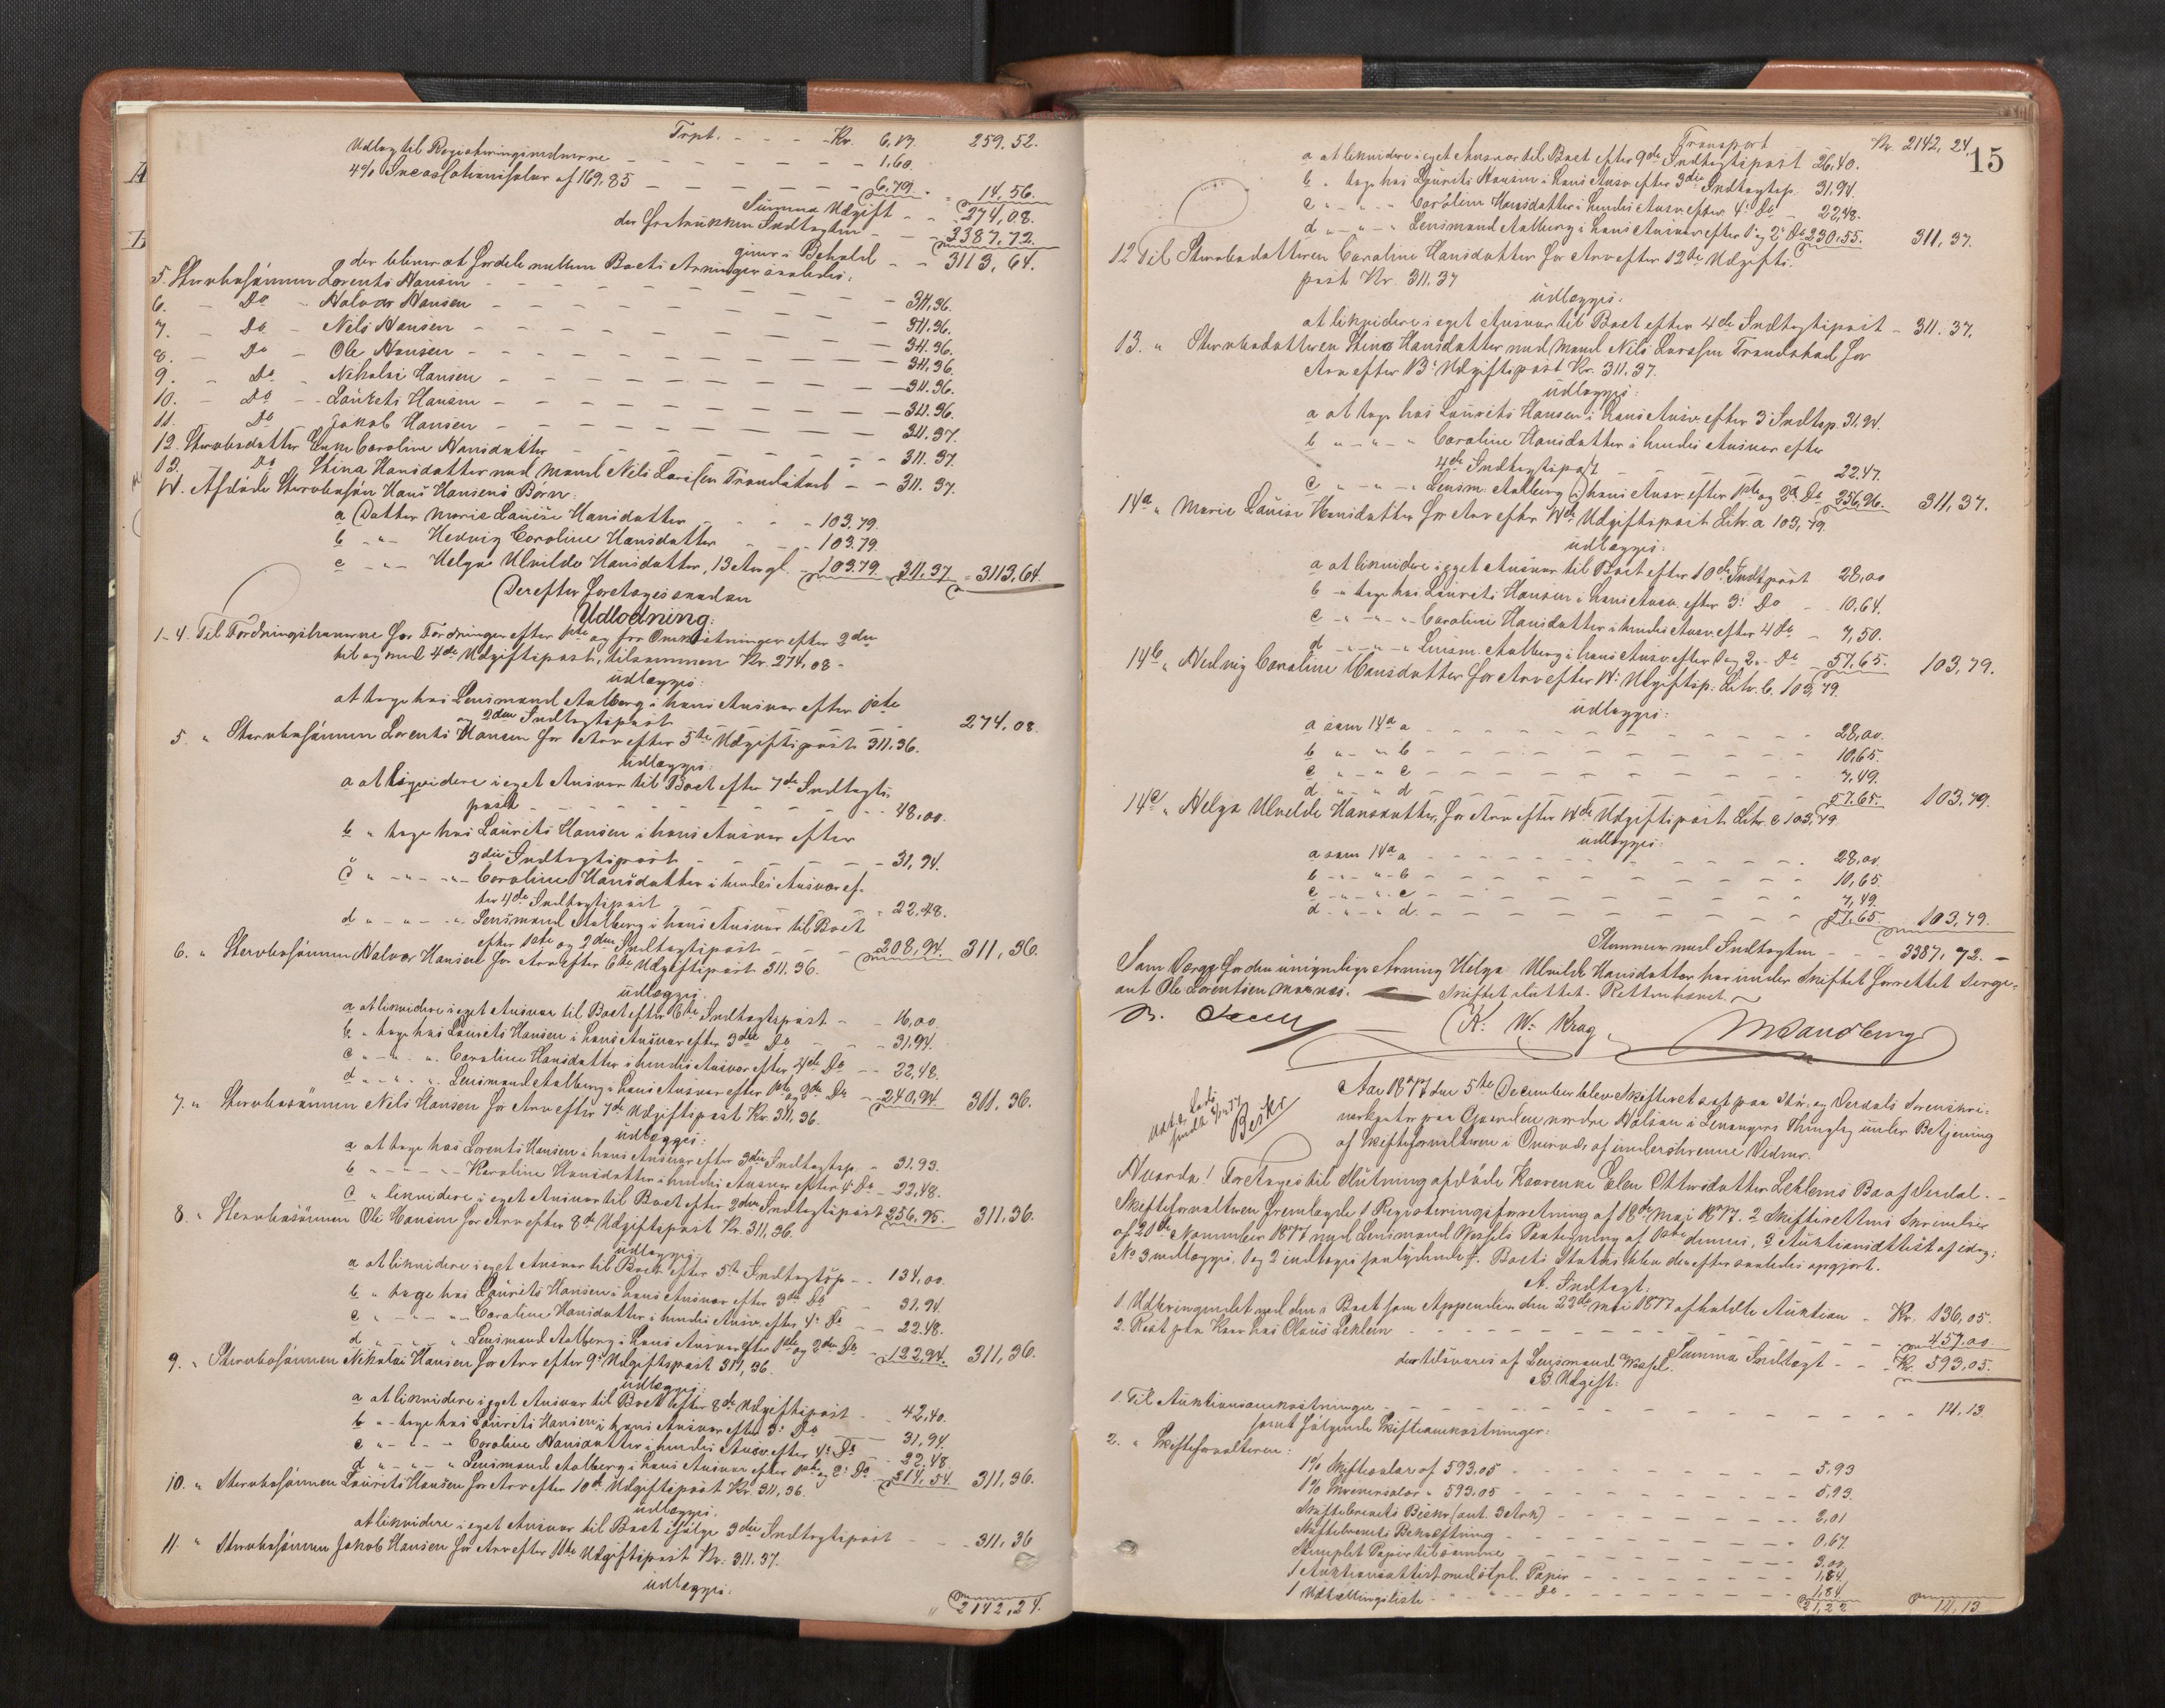 Trpt. - - - Kr. 6,17. 259.52.
Udlæg til Registeringsmændene - - - 1,60.
4% Incassationssalær af 169,85 - - - 6,79. - 14,56.
Summa Udgift - - 274,08.
der fratrukken Indtægten - - - 3387,72.
giver i Behold - - 3113,64.
der bliver at fordele mellem Boets Arvinger saaledes:
5. Stervbosønnen Lorents Hansen - - - 311.36.
6. - Do - Halvor Hansen - - - 311.36.
7. - Do - Nils Hansen - - - 311.36.
8. - Do - Ole Hansen - - - 311,36.
9. - Do - Nikolai Hansen - - - 311.36.
10. - Do - Laurits Hansen - - - 311.36.
11. Do Jakob Hansen - - - 311.37.
12. Stervbodatter Enke Caroline Hansdatter - - - 311.37.
13. Do Stina Hansdatter med Mand Nils Larssen Trandstad - - 311.37.
14. Afdøde Stervbosøn Hans Hansens Børn:
a Datter Marie Louise Hansdatter - - - 103.79.
b - " - Hedvig Caroline Hansdatter - - - 103.79.
c - " - Helga Ulvilde Hansdatter, 13 Aar gl. - 103.79. 311,37 = 3113,64.
Derefter foretoges saadan
Udlodning:
1-4. Til Fordringshaverne for Fordringer efter 1ste og for Omkostninger efter 2den
til og med 4de Udgiftspost, tilsammen Kr. 274,08 -
udlægges:
at tage hos Lensmand Aalberg i hans Ansvar efter 1ste
og 2den Indtægtspost - - - 274,08.
5. " Stervbosønnen Lorents Hansen for Arv efter 5te Udgiftspost 311.36.
udlægges:
a at likvidere i eget Ansvar til Boet efter 7de Indtægts-
post - - - 48,00.
b " tage hos Laurits Hansen i hans Ansvar efter
3die Indtægtspost - - - 31,94.
c " - " - Caroline Hansdatter i hendes Ansvar ef-
ter 4de Indtægtspost - - - 22,48.
d " - " - " Lensmand Aalberg i hans Ansvar til Boet
efter 1ste og 2den Indtægtspost - - - 208,94. 311,36.
6. " Stervbosønnen Halvor Hansen for Arv efter 6te Udgiftspost 311.36.
udlægges:
a at likvidere i eget Ansvar til Boet efter 6te Indtægtspost - - 16,00.
b " tage hos Laurits Hansen i hans Ansvar efter 3die Do - - 31.94.
c " - " - " Caroline Hansdatter i hendes Ansvar efter 4de Do - - 22,48.
d " - " - " Lensmand Aalberg i hans Ansvar efter 1ste og 2de Do - 240,94. 311,36.
7. " Stervbosønnen Nils Hansen for Arv efter 7de Udgiftspost Kr. 311.36.
udlægges:
a at tage hos Lorents Hansen i hans Ansvar efter 3die Indtægtsp. - 31.93.
b - - - - Karoline Hansdatter i hendes Ansvar efter 4de Do - 22,48.
c " likvidere i eget Ansvar til Boet efter 2den Indtægtspost 256,95. 311,36.
8. " Stervbosønnen Ole Hansen for Arv efter 8de Udgiftspost Kr. 311,36.
udlægges:
a at likvidere i eget Ansvar til Boet efter 5te Indtægtsp - - 134,00.
b " tage hos Laurits Hansen i hans Ansvar efter 3die Do - 31.94.
c " - " - " Caroline Hansdatter i hendes Ansv. efter 4de Do - - 22.48.
d " - " - " Lensmand Aalberg i hans Ansvar efter 1ste og 2den Do - 122,94. 311,36.
9. " Stervbosønnen Nikolai Hansen for Arv efter 9de Udgiftspost 311,36.
udlægges:
a at likvidere i eget Ansvar til Boet efter 8de Udgiftspost - 42,40.
b " - tage hos Laurits Hansen i hans Ansvar efter 3die Do - 31,94.
c " - " - " Caroline Hansdatter i hendes Ansv. efter 4de Do - 22,48.
d " - " - " Lensmand Aalberg i hans Ansvar efter 1ste og 2de Do - 214,54. 311,36.
10. " Stervbosønnen Laurits Hansen for Arv efter 10de Udgiftspost Kr. 311,36.
udlægges:
at likvidere i eget Ansvar til Boet ifølge 3die Indtægtspost - - - 311,36
11. " Stervbosønnen Jakob Hansen for Arv efter 11te Udgiftspost Kr. 311.37.
udlægges:
" 2142,24.
15
Transport Kr. 2142,24.
a at likvidere i eget Ansvar til Boet efter 9de Indtægtspost 26,40.
b " tage hos Laurits Hansen i hans Ansv. efter 3die Indtægtsp. 31,94.
c " - " - Caroline Hansdatter i hendes Ansv. efter 4de Do - 22,48.
d " - " - " Lensmand Aalberg i hans Ansvar efter 1 og 2 Do 230,55. 311,37.
12 Til Stervbodatteren Caroline Hansdatter for Arv efter 12te Udgifts-
post Kr. 311.37
udlægges:
at likvidere i eget Ansvar til Boet efter 4de Indtægtspost - 311.37.
13. " Stervbodatteren Stina Hansdatter med Mand Nils Larssen Trandstad for
Arv efter 13de Udgiftspost Kr. 311.37.
udlægges:
a at tage hos Laurits Hansen i hans Ansv. efter 3die Indtsp. 31.94.
b " - " - " Caroline Hansdatter i hendes Ansvar efter
4de Indtægtspost - - - 22.47.
c " - " - " Lensm. Aalberg i hans Ansv. efter 1ste og 2den Do 256,96. 311,37.
14a " Marie Louise Hansdatter for Arv efter 14de Udgiftspost Litr. a 103,79.
udlægges:
a at likvidere i eget Ansvar til Boet efter 10de Indtpost 28,00
b " tage hos Laurits Hansen i hans Ansv. efter 3die Do - - 10,64.
c " - " - " Caroline Hansdatter i hendes Ansv. efter 4 Do - 7,50.
d " - " - " Lensm. Aalberg i hans Ansv. efter 1 og 2. Do 57,65. 103,79.
14b " Hedvig Caroline Hansdatter for Arv efter 14de Udgiftsp. Litr. b. 103,79.
udlægges:
a som 14a a - - - 28,00.
b " - " b - - - 10,65.
c " - " c - - - 7,49.
d " - " d - - - 57.65. 103,79.
14c " Helga Ulvilde Hansdatter, for Arv efter 14de Udgiftspost Litr. c 103,79.
udlægges:
a som 14a a - - - 28,00.
b - " - " - b - - - 10,65.
c - " - " - c - - - 7,49.
d. - " - " d. - - - 57.65. 103,79.
Stemmer med Indtægten - - - 3387,72. -
Som Værge for den umyndige Arving Helga Ulvilde Hansdatter har under Skiftet forrettet Serge-
ant Ole Lorentsen Maanæs. - Skiftet sluttet. Retten hævet.
K. W. Krag MSandberg
Aar 1877 den 5te December blev Skifteret sat paa Stør- og Verdals Sorenskri-
verkontor paa Gaarden nordre Holsan i Levangers Thinglag under Betjening
af Skifteforvalteren i Overvær af underskrevne Vidner.
Beskr
Hvorda! Foretoges til Slutning afdøde Kaarenke Elen Ottersdatter Leklems Bo af Verdal. -
Skifteforvalteren fremlagde 1 Registeringsforretning af 18de Mai 1877. 2 Skifterettens Skrivelse
af 20de November 1877 med Lensmand Wessels Paategning af 1ste dennes, 3 Auktionsattest af idag;
No 3 vedlægges, 1 og 2 indtages saalydende #. Boets Status blev derefter saaledes opgjort.
A. Indtægt.
1. Udbringendet ved den i Boet som Appendix den 23de Mai 1877 afholdte Auktion - Kr. 136,05.
2. Rest paa Kaar hos Olaus Leklem - - - 457,00.
Summa Indtægt - - Kr. 593,05.
der tilsvares af Lensmand Wessel.
B. Udgift:
1. Til Auktionsomkostninger - - - 14,13.
samt følgende Skifteomkostninger:
2. " Skifteforvalteren:
1% Skiftesalær af 593,05 - - - 5,93
1% Skriversalær " 593,05 - - - 5,93.
Skiftebrevets Beskr (ant. 3 Ark) - - - 2,01
Skiftebrevets Bekræftning - - - 0,67
Stemplet Papir til samme - - - 3,00
1 Auktionsattest med stpl. Papir - - - 1,84
1 Udtællingsliste - " - " - Do - - - 1,84
21,22 14,13